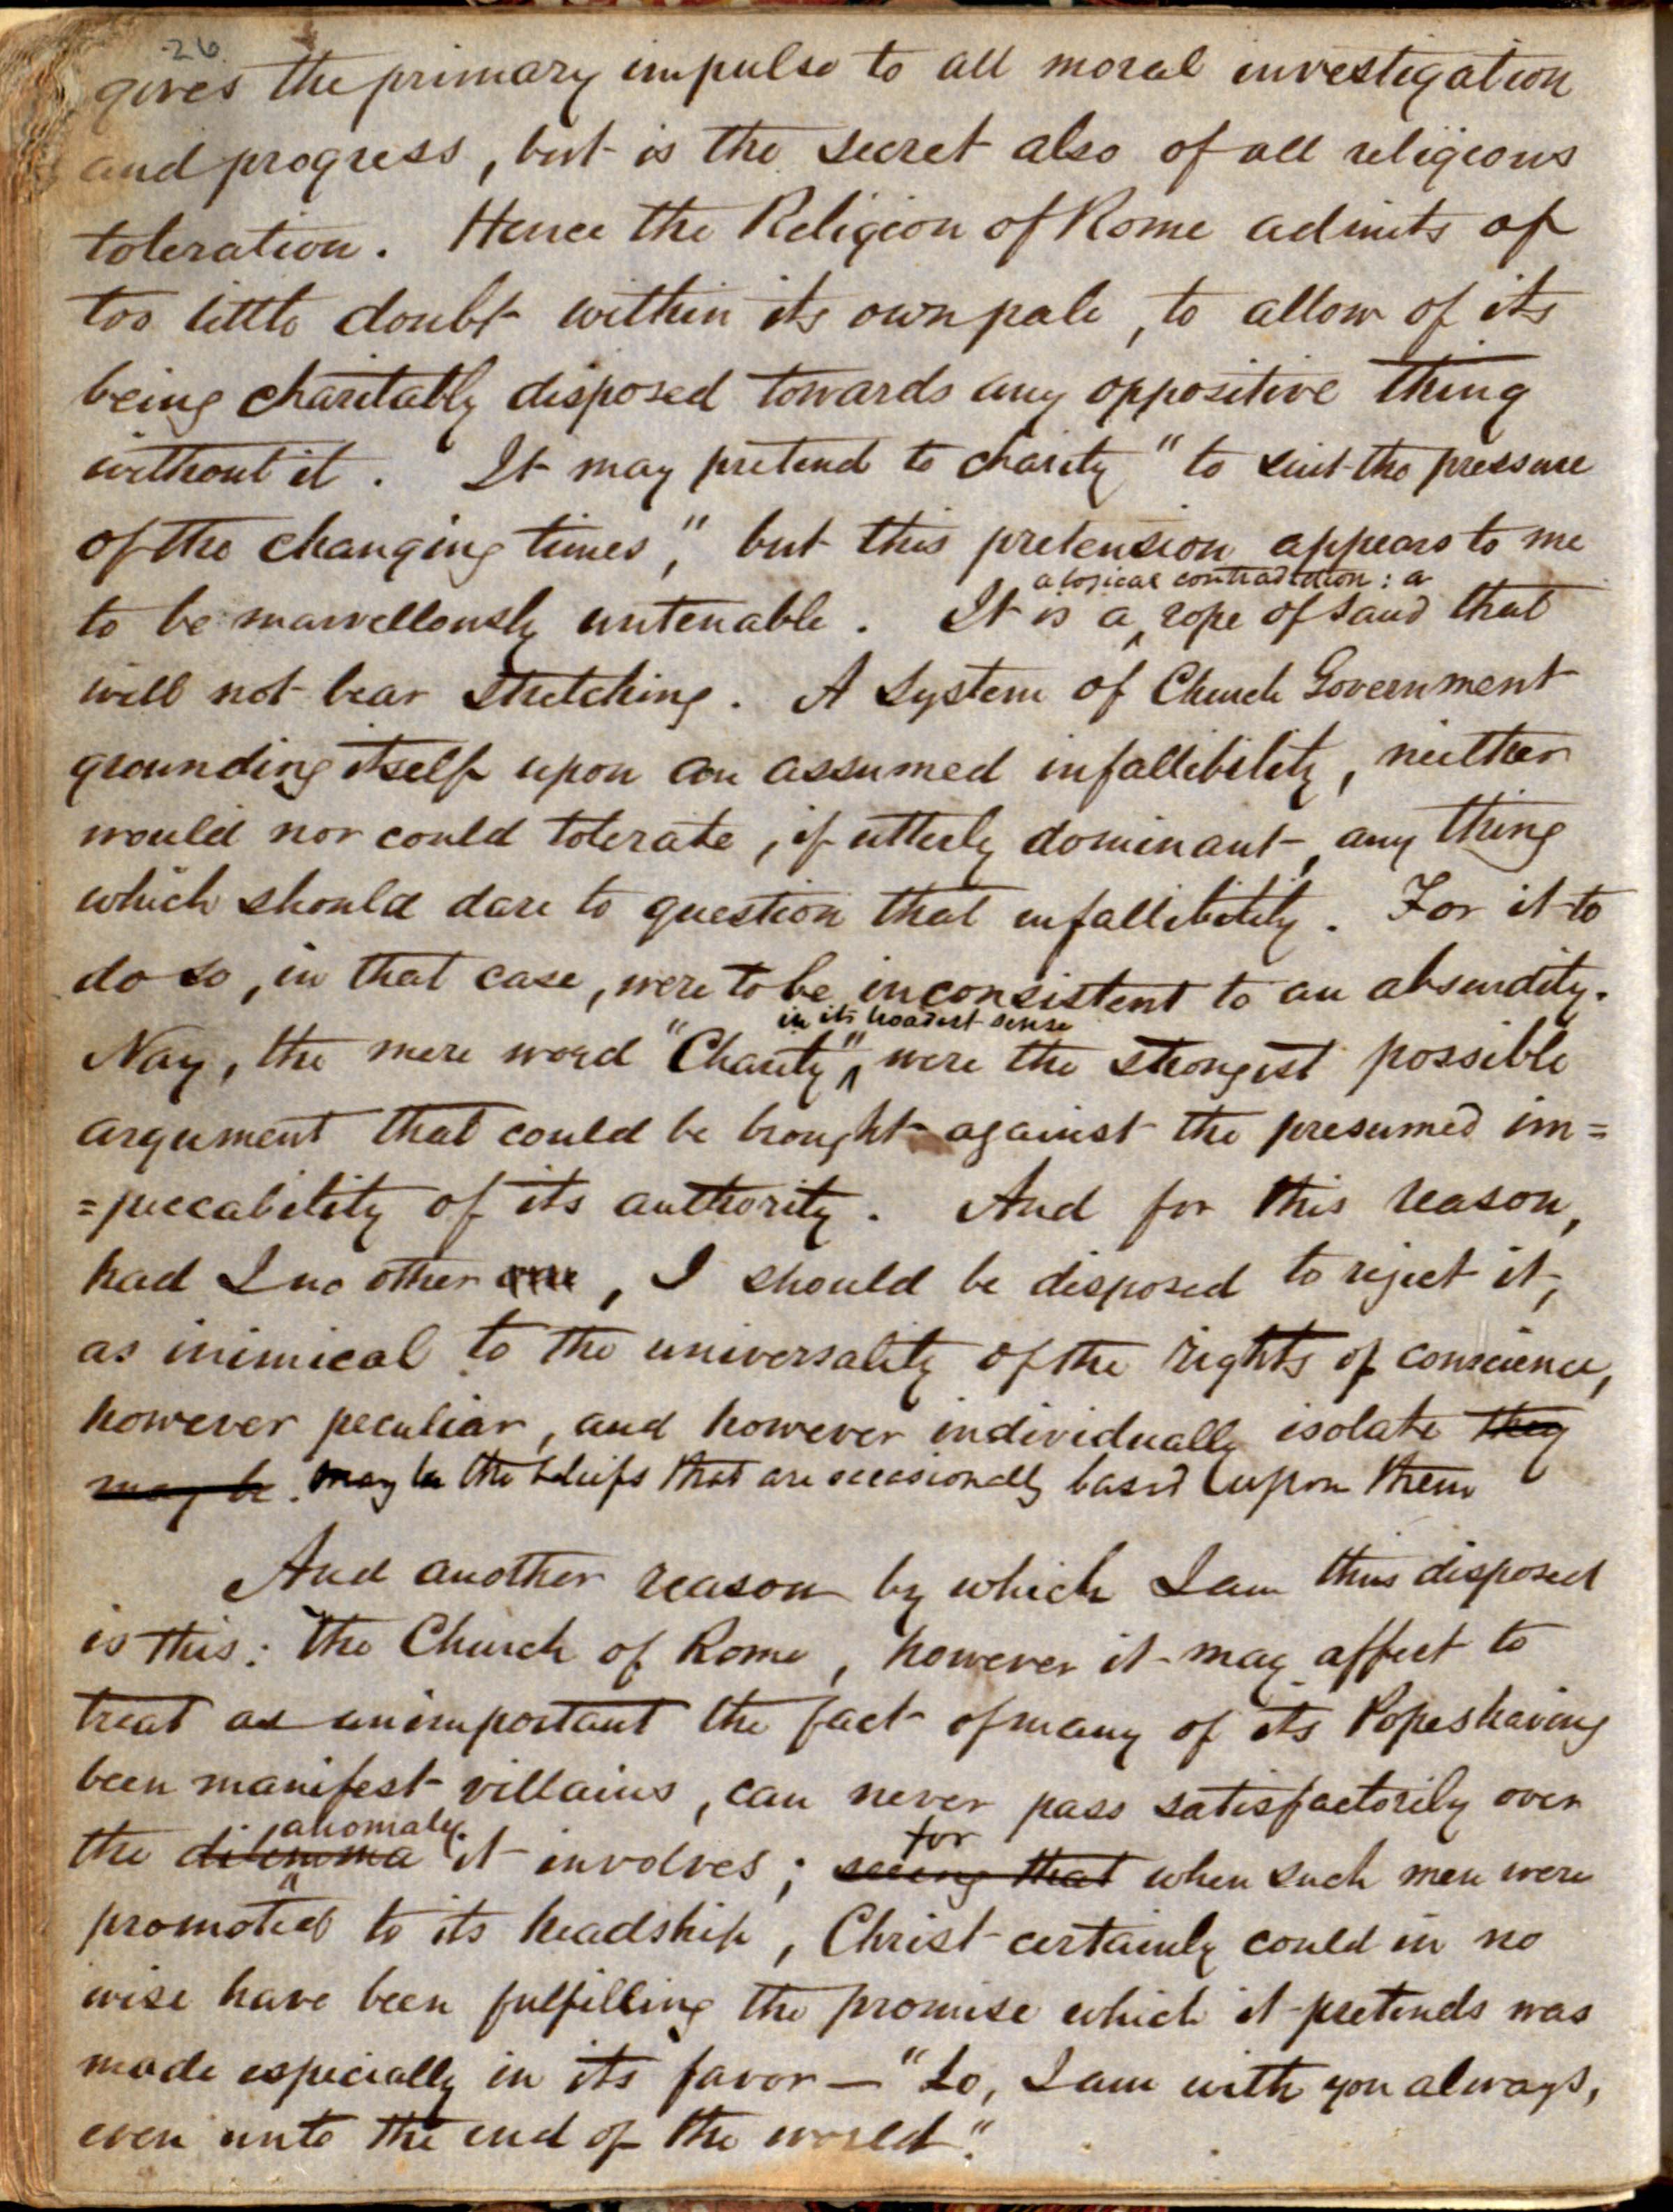 26
gives the primary impulse to all moral investigation
and progress, but is the secret also of all religious
toleration. Hence the Religion of Rome admits of
too little doubt within its own pale, to allow of its
being charitably disposed towards any oppositive thing
without it. It may pretend to charity "to suit the pressure
of the changing times," but this pretension appears to me
a logical contradiction: a
to be marvellously untenable. It is a rope of sand that
will not bear stretching. A system of Church Government
grounding itself upon an assumed infallibility, neither
would nor could tolerate, if utterly dominant, any thing
which should dare to question that infallibility. For it to
do so, in that case, were to be inconsistent to an absurdity.
in its broadest sense
Nay, the mere word "Charity", were the strongest possible
argument that could be brought against the presumed im=
=peccability of its authority. And for this reason,
had I no other one, I should be disposed to reject it,
as inimical to the universality of the rights of conscience,
however peculiar, and however individually isolate they
may be. may be the beliefs that are occasionally based upon them
And another reason by which I am thus disposed
is this: the Church of Rome, however it may affect to
treat as unimportant the fact of many of its Popes having
been manifest villains, can never pass satisfactorily over
anomaly for
the dilemma it involves; seeing that when such men were
promoted to its headship, Christ certainly could in no
wise have been fulfilling the promise which it pretends was
made especially in its favor — "Lo, I am with you always,
even unto the end of the world".